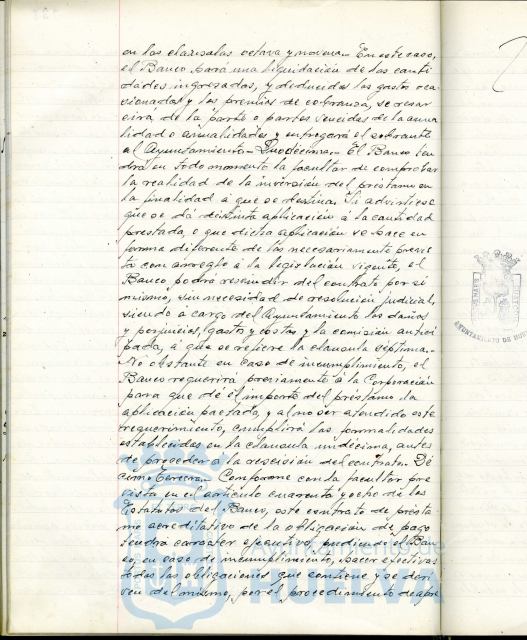 en las clausulas octava y novena. En este caso,
el Banco hará una liquidación de las canti
dades ingresadas, y deducidos los gastos oca
sionados y los premios de cobranza, se resar
cirá de la parte o partes vencidas de la anua
lidad o anualidades y entregará el sobrante
al Ayuntamiento.- Duodécima.- El Banco ten
drá en todo momento la facultad de comprobar
la realidad de la inversión del préstamo en
la finalidad á que se destina. Si advirtiese
que se dá distinta aplicación á la cantidad
prestada, o que dicha aplicación se hace en
forma diferente de las necesariamente previs
ta con arreglo á la legislación vigente, el
Banco podrá rescindir del contrato por si
mismo, sin necesidad de resolución judicial,
siendo a cargo del Ayuntamiento los daños
y perjuicios, gastos y costas y la comisión antici
pada, á que se refiere la clausula séptima.-
No obstante en caso de incumplimiento, el
Banco requerirá previamente á la Corporación
para que dé el importe del préstamo la
aplicación pactada, y al no ser atendido este
requerimiento, cumplirá las formalidades
establecidas en la clausula undécima, antes
de proceder a la rescisión del contrato. Dé
cimo Tercera.- Conforme con la facultad pre
vista en el articulo cuarenta y ocho de los
Estatutos del Banco, este contrato de présta
mo acreditativo de la obligación de pago
tendrá caracter ejecutivo, pudiendo el Ban
co, en caso de incumplimiento, hacer efectivas
todas las obligaciones que contiene y se deri
ven del mismo, por el procedimiento de apre
AYUNTAMIENTO DE HUE
Ayuntamiento de
HUELVA